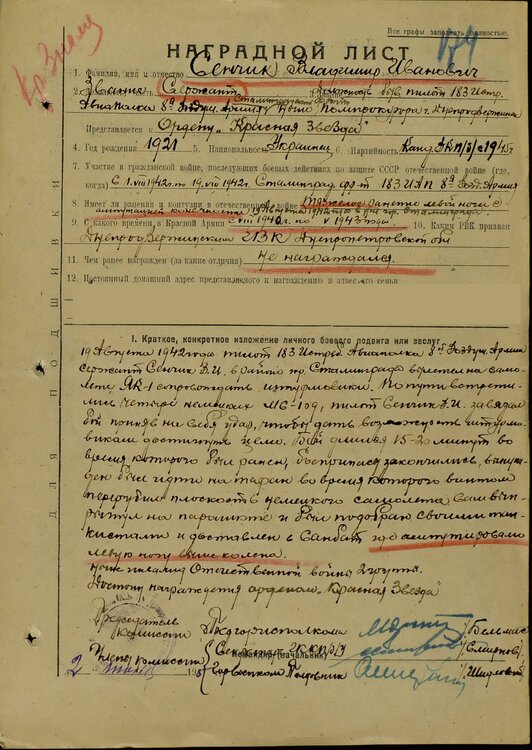 Все графы заполнять полностью.
Кр Знамя
НАГРАДНОЙ ЛИСТ
1. Фамилия, имя и отчество Сенчик Владимир Иванович
2. Звание Сержант пилот 183 Истр.
Авиаполка 8й Воздуш. Армии Сталинградский фронт г. Днепродзержинска
Представляется к Ордену "Красная Звезда"
4. Год рождения 1921 5. Национальность Украинец 6. Партийность Канд. ВКП/б/ с 1942
7. Участие в гражданской войне, последующих боевых действиях по защите СССР и отечественной войне (где,
когда) С 1.VIII 1942 г. по 19.VIII 1942 г. Сталинград. фр-т 183 ИАП 8й Возд. Армия
8. Имеет ли ранения и контузии в отечественной войне Тяжелое ранение левой ноги с
ампутацией конечности 19 Августа 1942 года в р-не гор. Сталинграда
9. С какого времени в Красной Армии с VIII 1940 г. по V 1943 года 10. Каким РВК призван
Днепродзержинским ГВК Днепропетровской обл
11. Чем ранее награжден (за какие отличия) Не награждался.
12. Постоянный домашний адрес представляемого к награждению и адрес его семьи
ДЛЯ ПОДШИВКИ
I. Краткое, конкретное изложение личного боевого подвига или заслуг
19 Августа 1942 года пилот 183 Истреб. Авиаполка 8й Воздуш. Армии
Сержант Сенчик В.И. в районе гор. Сталинграда вылетел на само-
лете ЯК-1 сопровождать штурмовики. По пути встрети-
ли четверо немецких МС-109, пилот Сенчик В.И. завязал
бой приняв на себя удар, чтобы дать возможность штурмо-
викам достигнуть цели. Бой длился 15-20 минут во
время которого был ранен, боеприпасы закончились, вынуж-
ден был идти на таран во время которого винтом
перерубил плоскость немецкого самолета сам вып-
рыгнул на парашюте и был подобран своими тан-
кистами и доставлен в Санбат где ампутировали
левую ногу выше колена.
Ныне инвалид Отечественной войны 2 группы.
Достоин награждения орденом "Красная Звезда"
Председатель
Комиссии Предгорисполкома /Бельмас
Члены Комиссии Секретарь ГК КП/б/У /Смирнов/
Командир (начальник)
Горвоенком Полковник /Шидловский
2 195